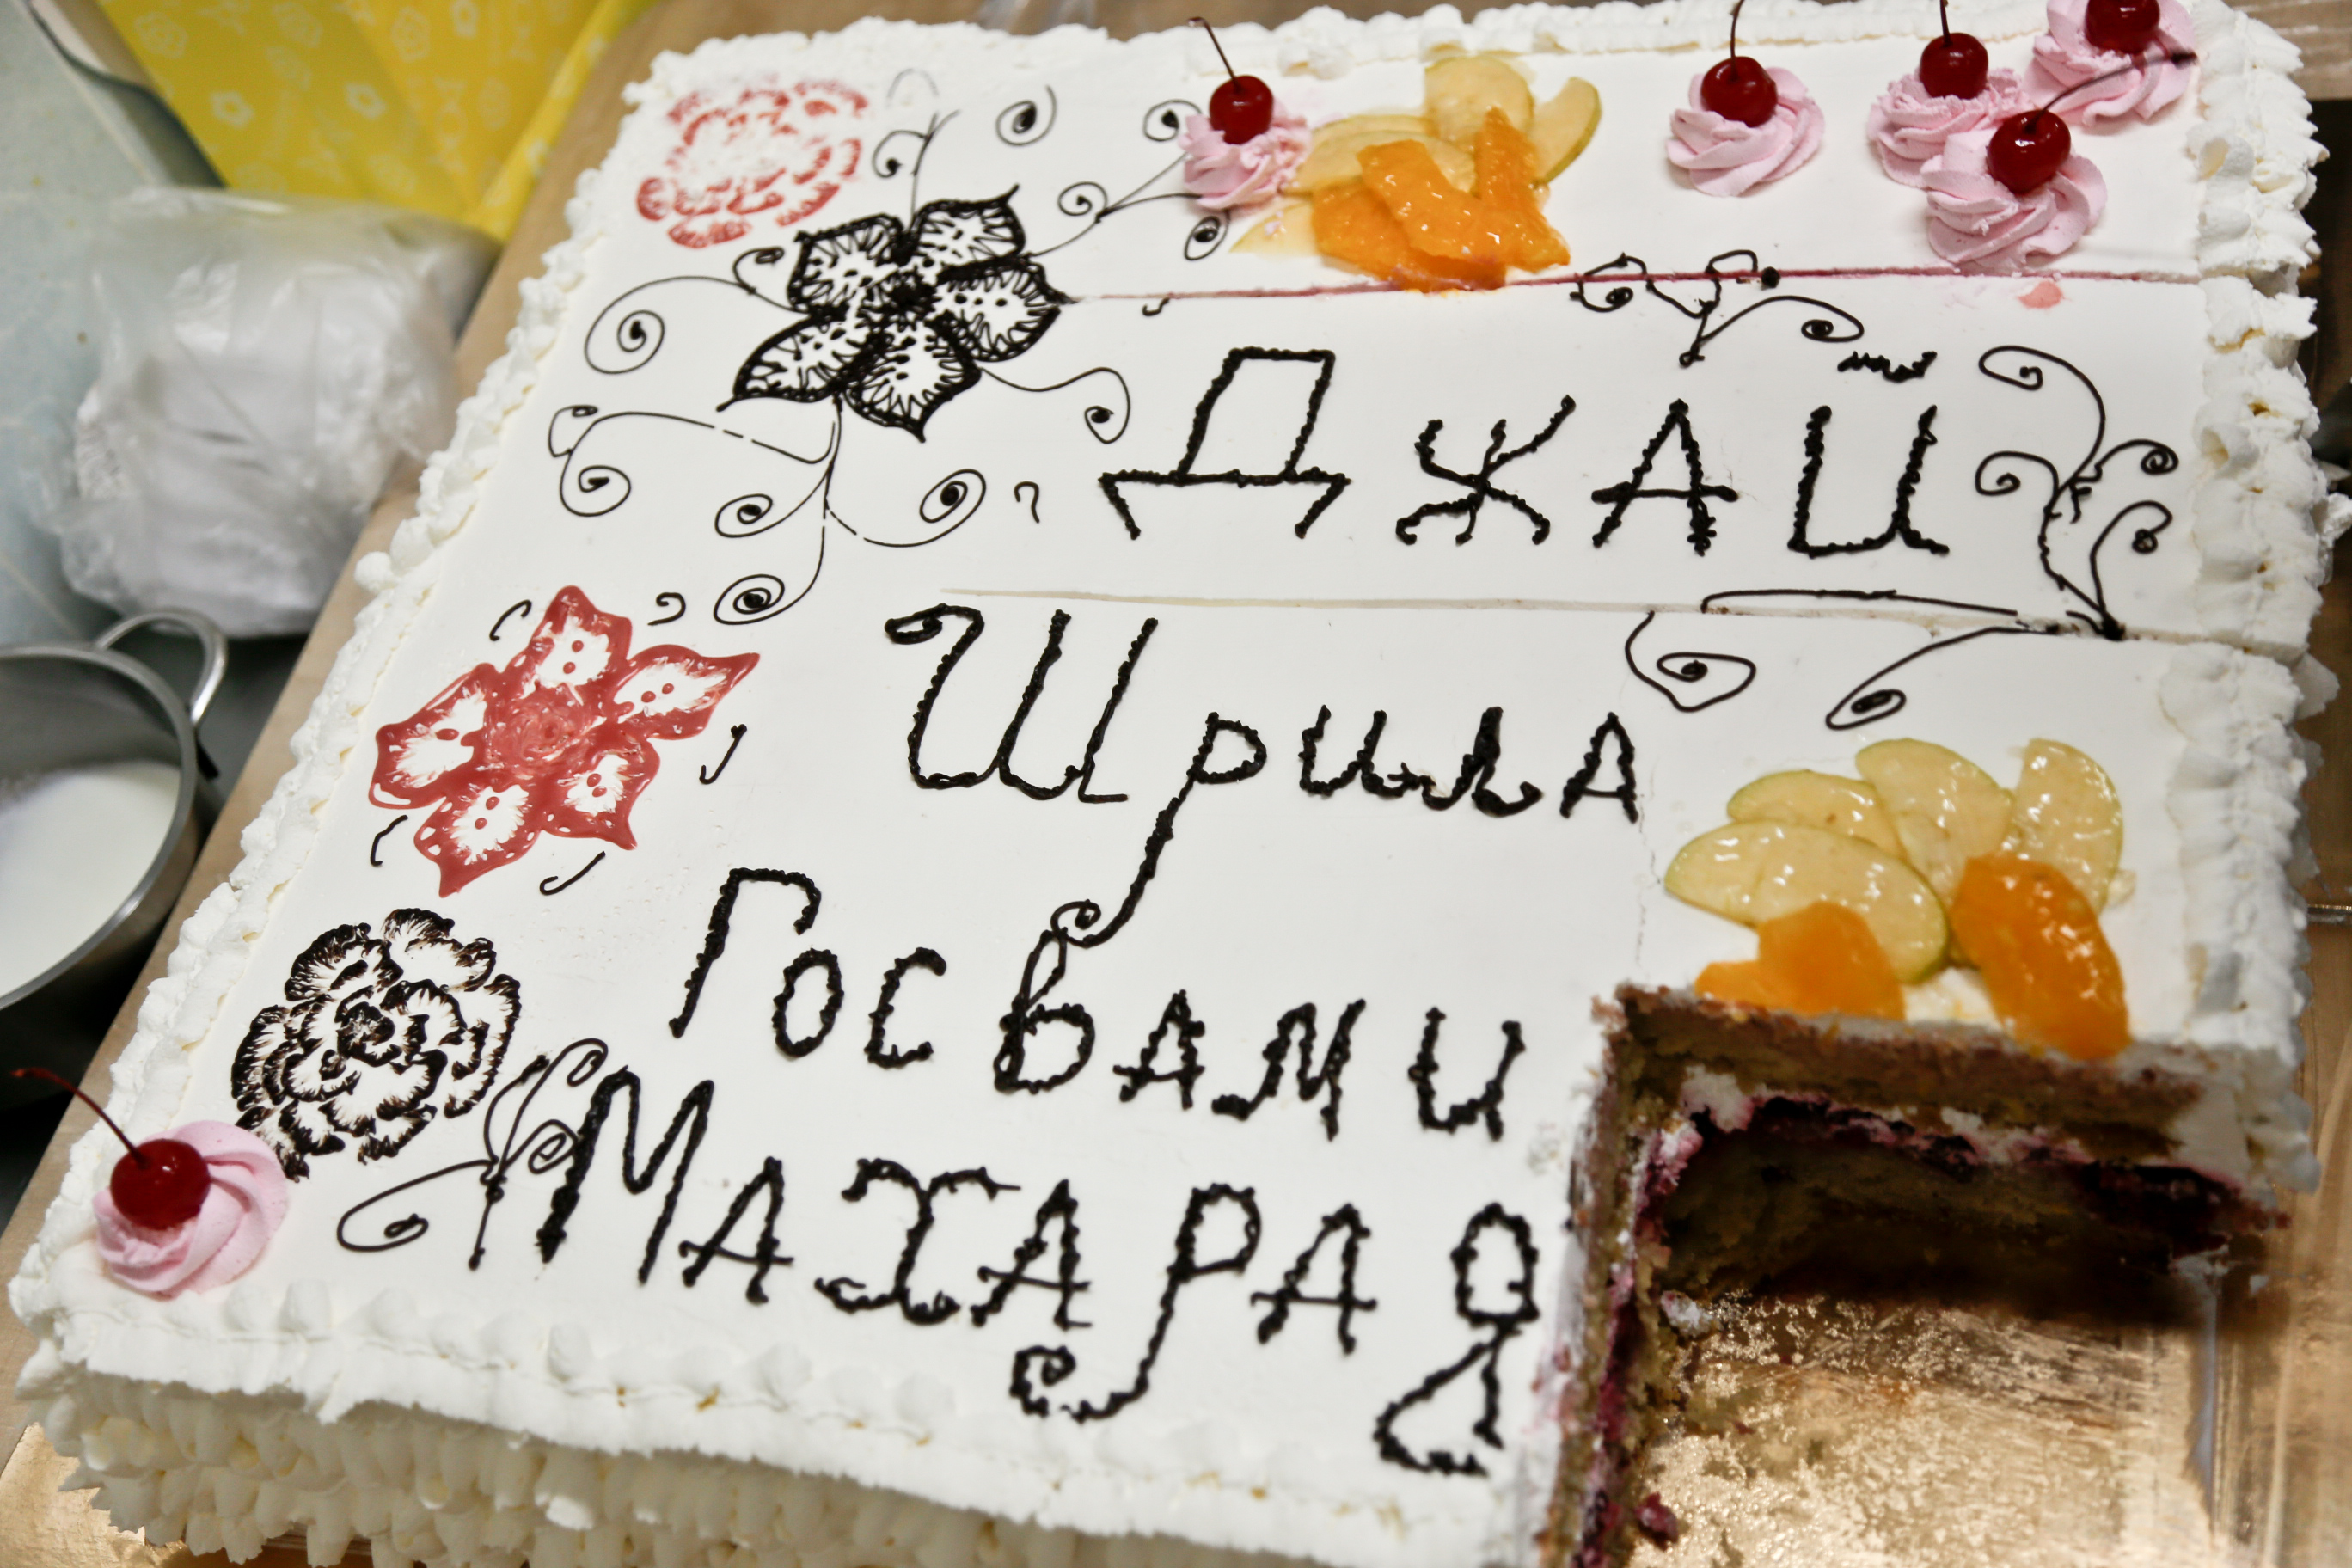 ДЖАЙ
Шрила
Госвами
Махарая